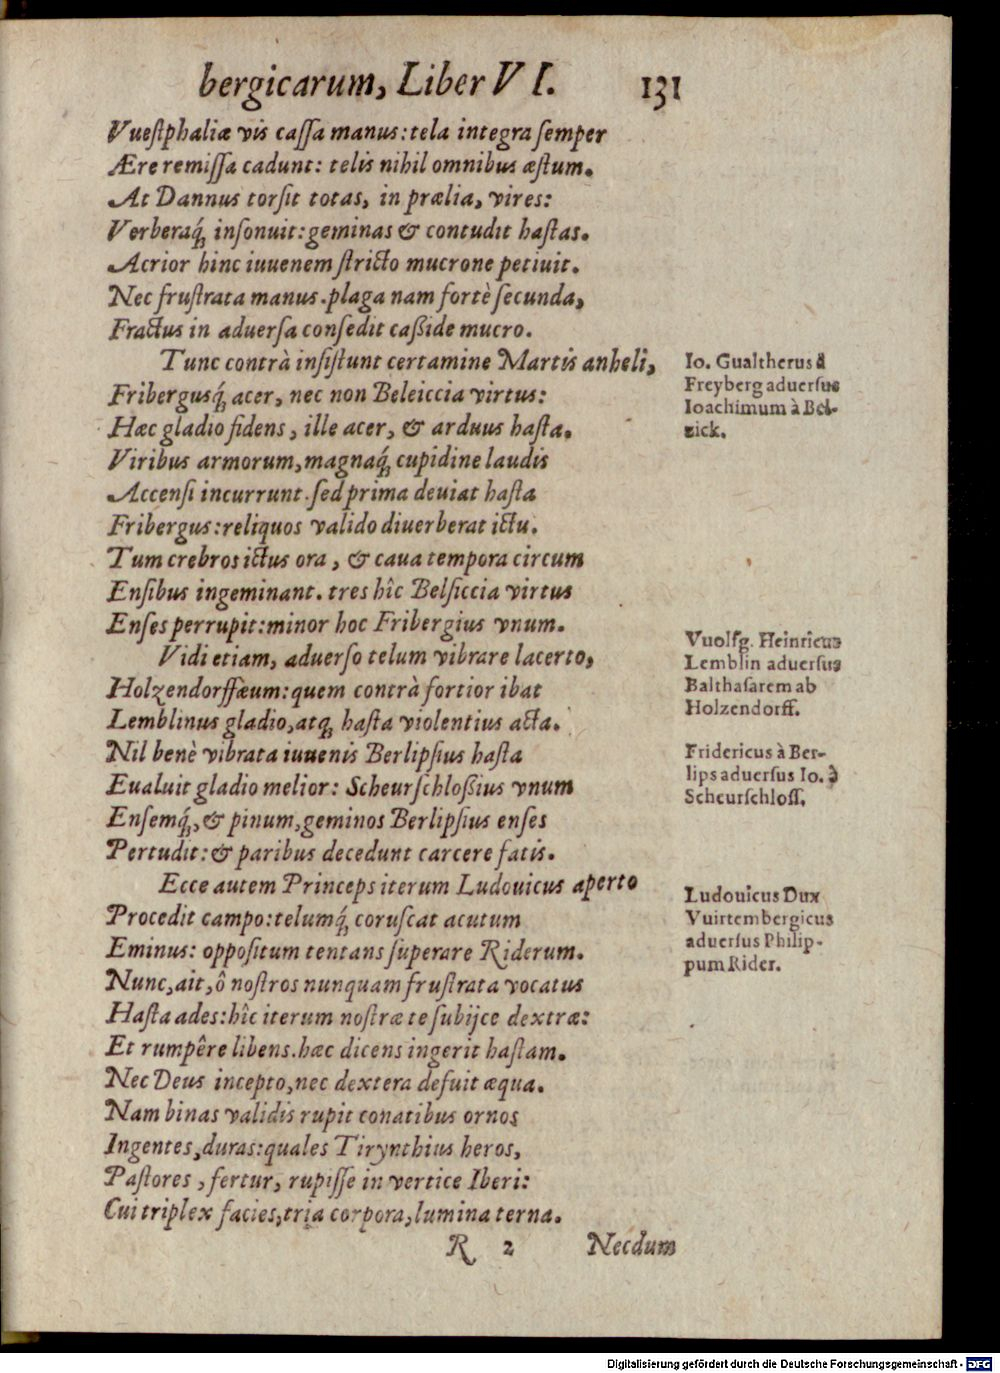 bergicarum, Liber VI. 131
Vuestphaliæ vis cassa manus: tela integra semper
Ære remissa cadunt: telis nihil omnibus æstum.
At Dannus torsit totas, in prælia, vires:
Verberaq́; insonuit: geminas & contudit hastas.
Acrior hinc iuuenem stricto mucrone petiuit.
Nec frustrata manus. plaga nam fortè secunda,
Fractus in aduersa consedit casside mucro.
Tunc contrà insistunt certamine Martis anheli,
Fribergusq́; acer, nec non Beleiccia virtus:
Hæc gladio fidens, ille acer, & arduus hasta.
Viribus armorum, magnaq́; cupidine laudis
Accensi incurrunt. sed prima deuiat hasta
Fribergus: reliquos valido diuerberat ictu.
Tum crebros ictus ora, & caua tempora circum
Ensibus ingeminant. tres hîc Belsiccia virtus
Enses perrupit: minor hoc Fribergius vnum.
Vidi etiam, aduerso telum vibrare lacerto,
Holzendorffæum: quem contrà fortior ibat
Lemblinus gladio, atq; hasta violentius acta.
Nil benè vibrata iuuenis Berlipsius hasta
Eualuit gladio melior: Scheurschlossius vnum
Ensemq́;, & pinum, geminos Berlipsius enses
Pertudit: & paribus decedunt carcere fatis.
Ecce autem Princeps iterum Ludouicus aperto
Procedit campo: telumq́; coruscat acutum
Eminus: oppositum tentans superare Riderum.
Nunc, ait, ô nostros nunquam frustrata vocatus
Hasta ades: hîc iterum nostræ te subijce dextræ:
Et rumpêre libens. hæc dicens ingerit hastam.
Nec Deus incepto, nec dextera defuit æqua.
Nam binas validis rupit conatibus ornos
Ingentes, duras: quales Tirynthius heros,
Pastores, fertur, rupisse in vertice Iberi:
Cui triplex facies, tria corpora, lumina terna.
R 2 Necdum
Io. Gualtherus à
Freyberg aduersus
Ioachimum à Bel-
zick.
Vuolfg. Heinricus
Lemblin aduersus
Balthasarem ab
Holzendorff.
Fridericus à Ber-
lips aduersus Io. à
Scheurschloss.
Ludouicus Dux
Vuirtembergicus
aduersus Philip-
pum Rider.
Digitalisierung gefördert durch die Deutsche Forschungsgemeinschaft - DFG